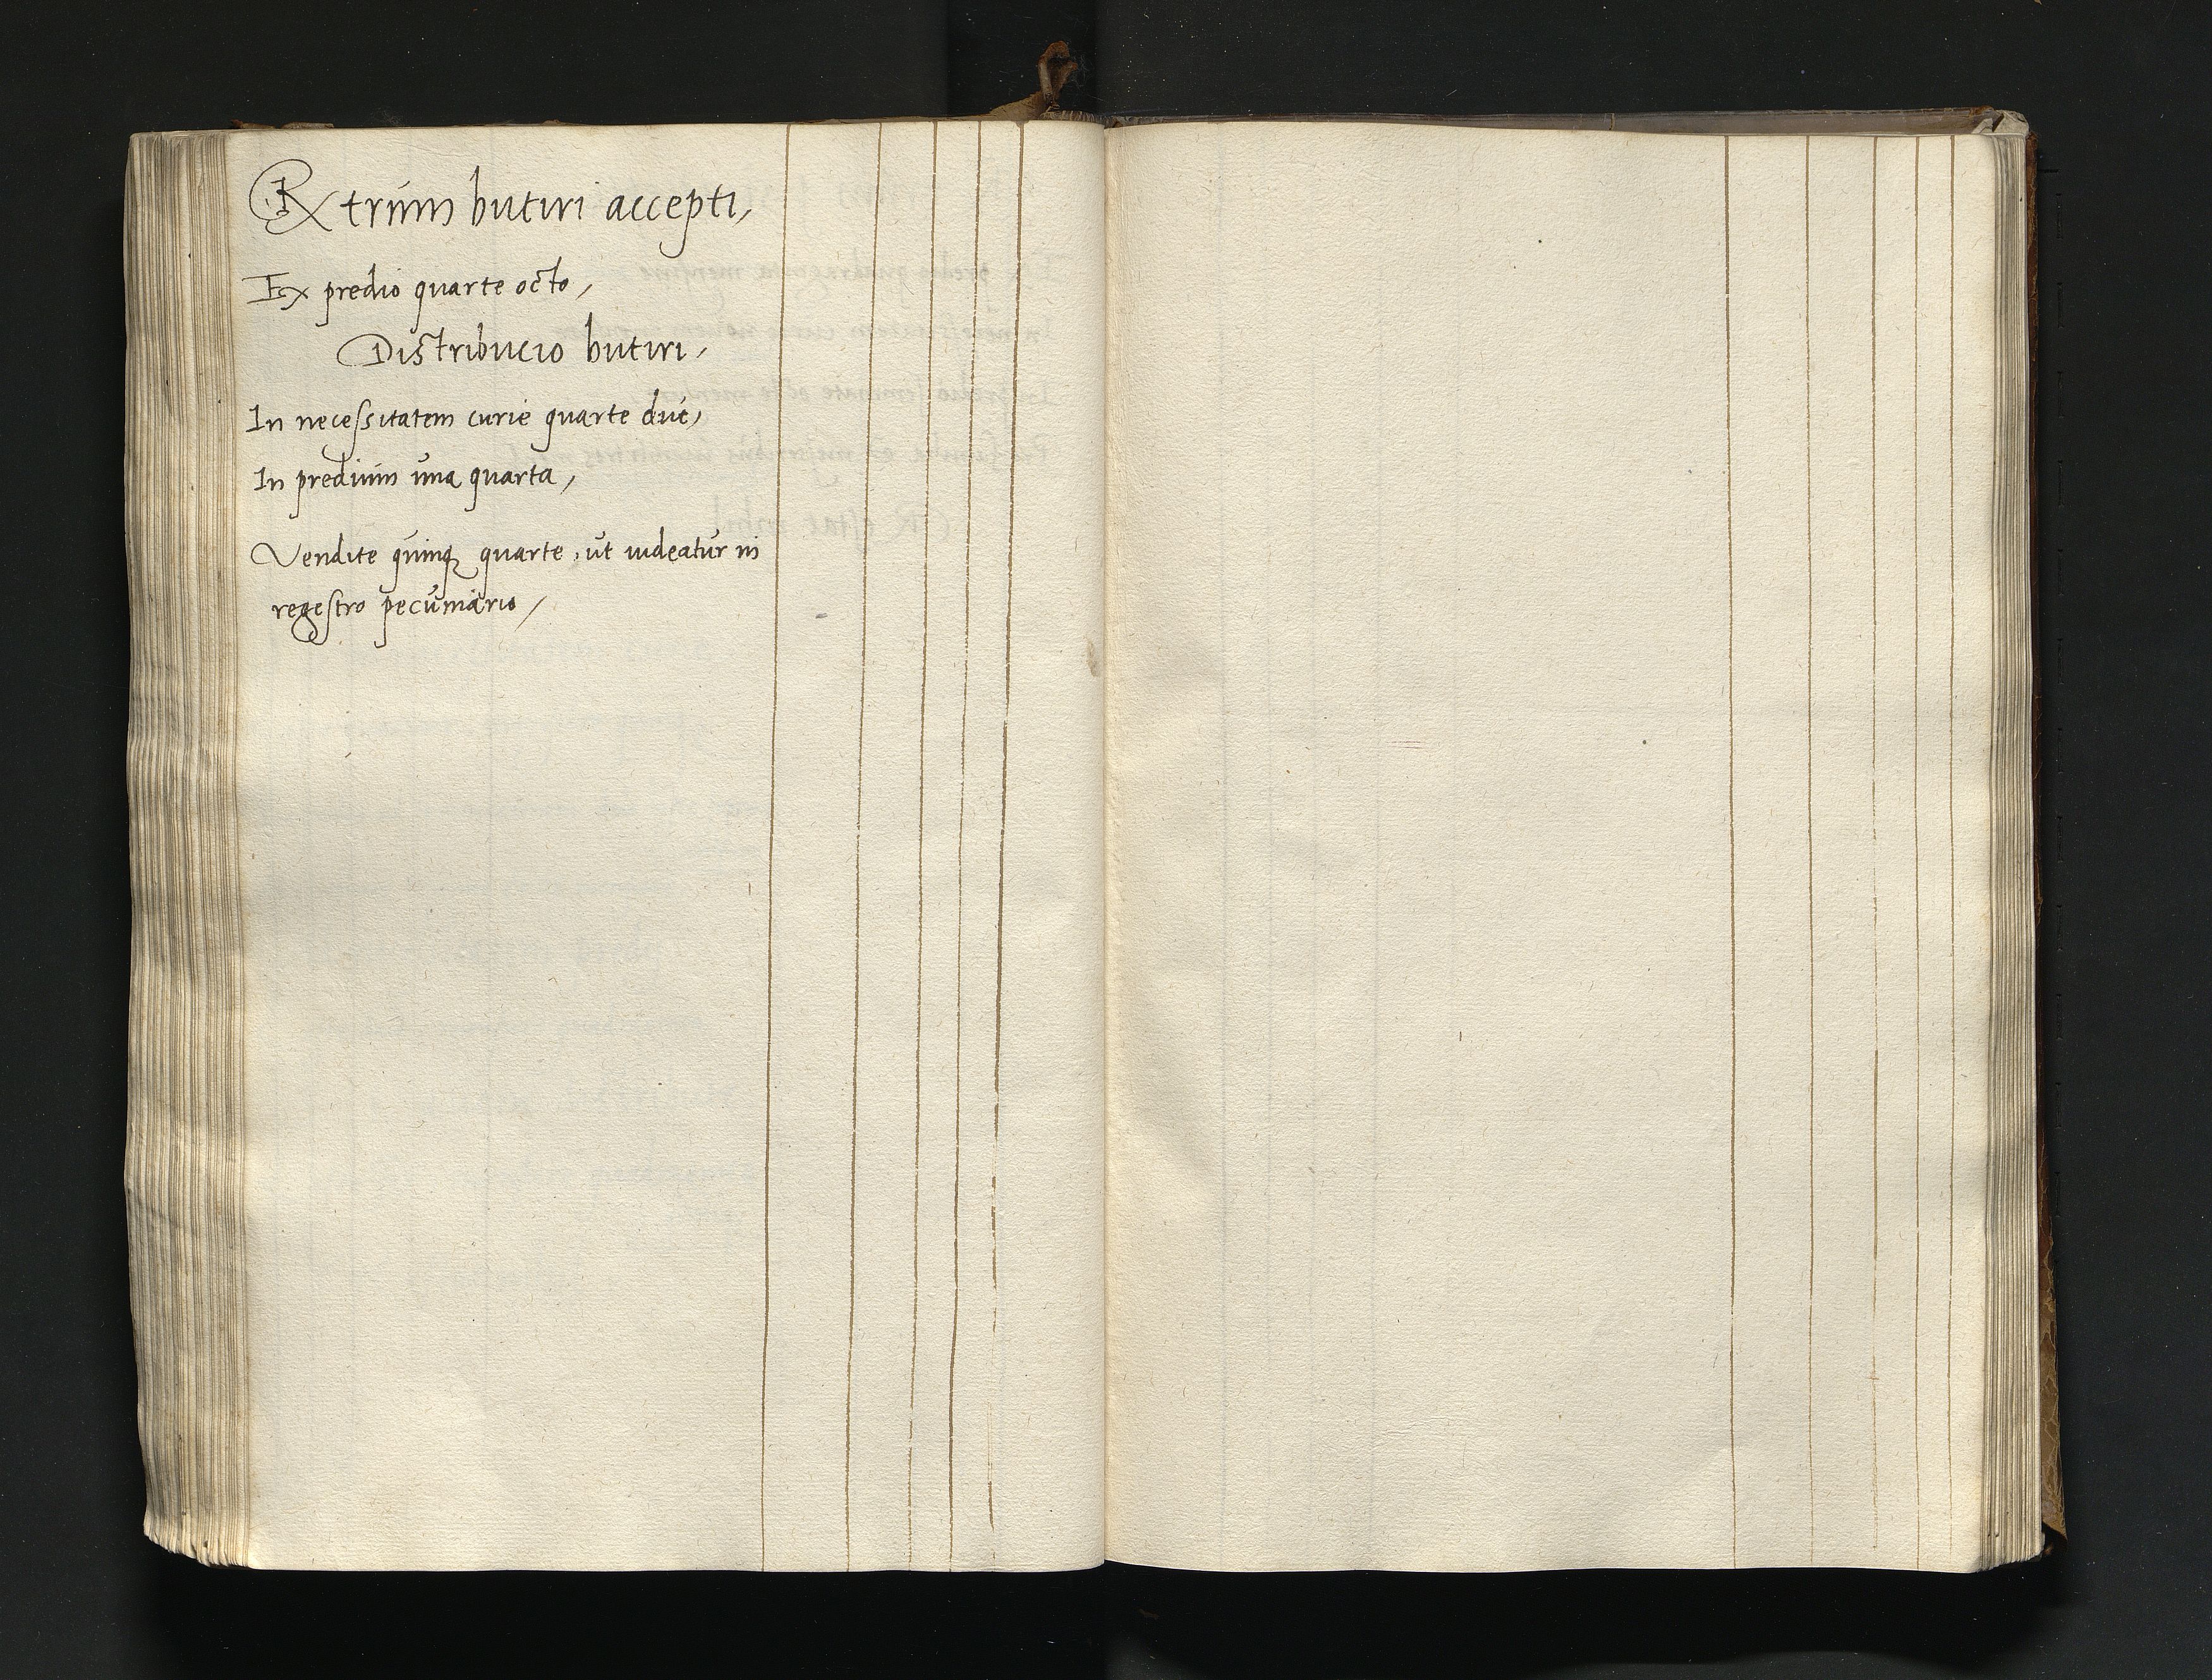 Rxtrum butiri accepti,
Ex predio quarte octo,
Distribucio butiri,
In necessitatem curie quarte due,
In predium una quarta,
Vendite quinq quarte, ut videatur in
regestro pecuniario,